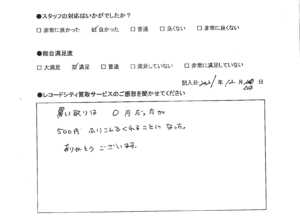 ●スタッフの対応はいかがでしたか？
□ 非常に良かった ☑ 良かった □ 普通 □ 良くない □ 非常に良くない
●総合満足度
□ 大満足 ☑ 満足 □ 普通 □ 満足していない □ 非常に満足していない
記入日 2021年 12月 日
●レコードシティ買取サービスのご感想を聞かせてください
買い取りは 0円だったが
500円 ふりこんでくれることになった。
ありがとうございます。